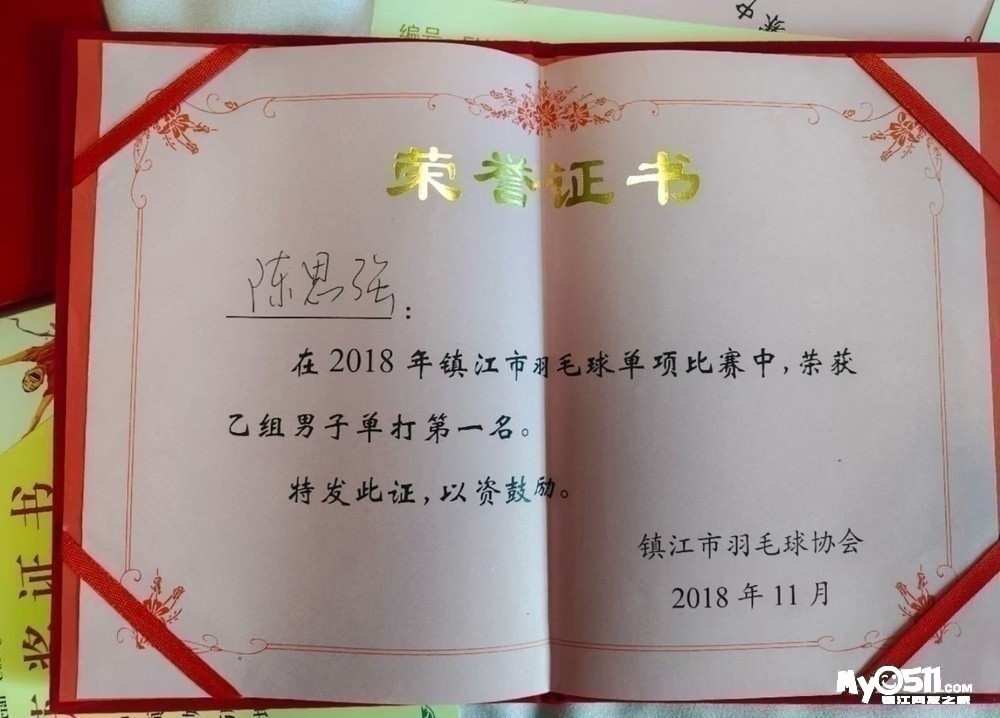 编号
荣誉证书
陈思强:
在2018年镇江市羽毛球单项比赛中,荣获
乙组男子单打第一名。
特发此证,以资鼓励。
镇江市羽毛球协会
2018年11月
奖证书
My0511.com